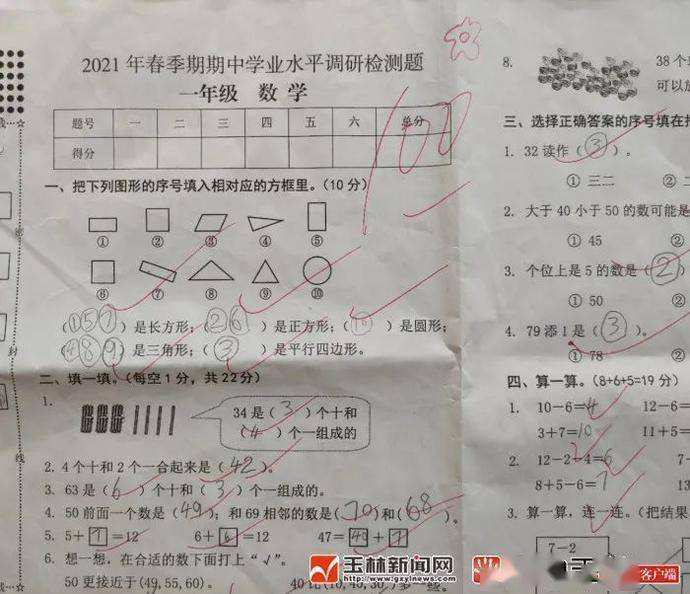 2021年春季期期中学业水平调研检测题
一年级 数学
题号 一 二 三 四 五 六 总分
得分
100
一、把下列图形的序号填入相对应的方框里。(10分)
① ② ③ ④ ⑤
⑥ ⑦ ⑧ ⑨ ⑩
(①⑤⑦)是长方形;(②⑥)是正方形;(⑩)是圆形;
(④⑧⑨)是三角形;(③)是平行四边形。
二、填一填。(每空1分,共22分)
1.
34是(3)个十和
(4)个一组成的
2. 4个十和2个一合起来是(42)。
3. 63是(6)个十和(3)个一组成的。
4. 50前面一个数是(49);和69相邻的数是(70)和(68)。
5. 5+7=12 6+6=12 47=40+7
6. 想一想,在合适的数下面打上“√”。
50更接近于(49,55,60)。
密
封
线
8.
38个
可以
三、选择正确答案的序号填在
1. 32读作(③)。
① 三二 ②
2. 大于40小于50的数可能是
① 45 ②
3. 个位上是5的数是(②)
① 50 ②
4. 79添1是(③)。
① 78 ②
四、算一算。(8+6+5=19分)
1. 10-6=4 12-6=
3+7=10 11+5=
2. 12-2-4=6 7-
8+5-6=7 1
3. 算一算,连一连。(把结果
7-2
玉林新闻网
www.gxylnews.com
客户端